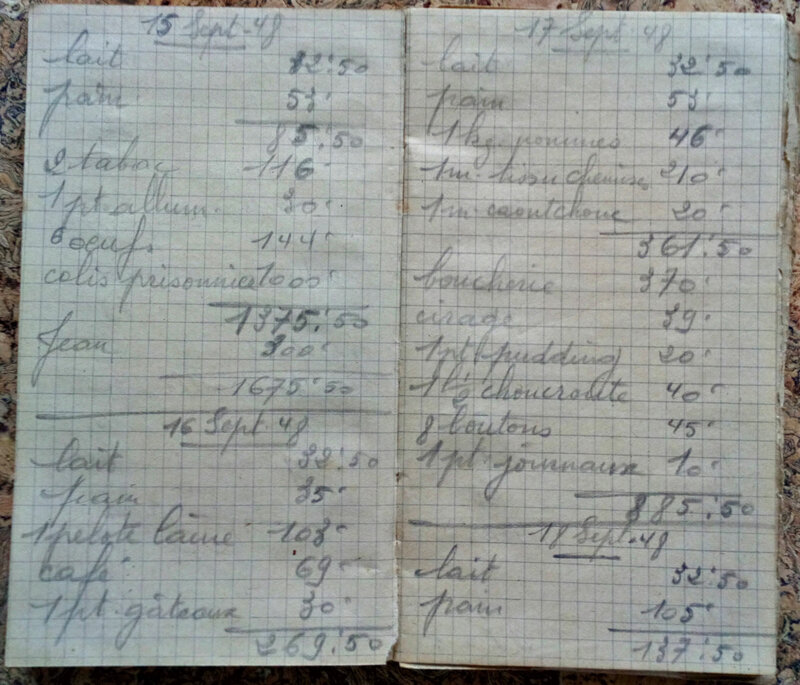 15 Sept. 48
lait 32:50
pain 53'
85:50
2 tabac 116'
1 pt allum. 30'
6 oeufs 144'
colis prisonnier 1000'
1375:50
Jean 300'
1675:50
16 Sept. 48
lait 32:50
pain 35'
1 pelote laine 103'
café 69'
1 pt. gâteaux 30'
269:50
17 Sept. 48
lait 32:50
pain 53'
1 kg. pommes 46'
1 m. tissu chemise 210'
1 m. caoutchouc 20'
361:50
boucherie 370'
cirage 39'
1 pt pudding 20'
1 l ½ choucroute 40'
8 boutons 45'
1 pt journaux 10'
885:50
18 Sept. 48
lait 32:50
pain 105'
137:50